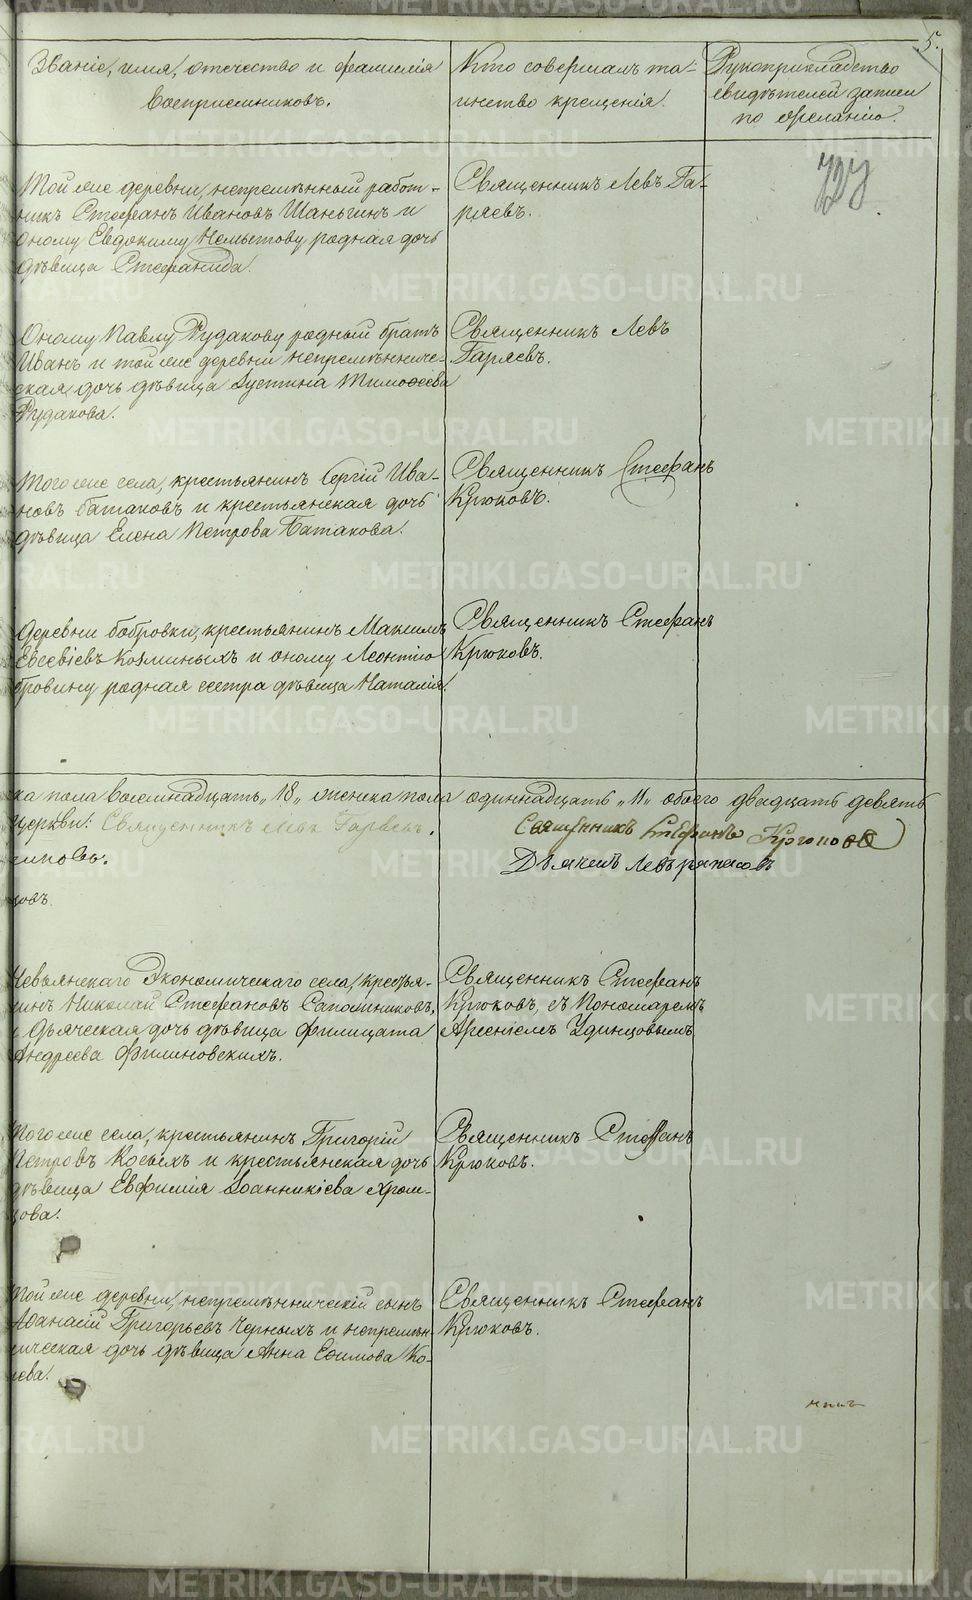 5.
Званіе, имя, отечество и фамилія
воспріемниковъ.
Кто совершалъ та-
инство крещенія.
Рукоприкладство
свидѣтелей записи
по желанію.
727
Той же деревни, непремѣнный работ-
никъ Стефанъ Ивановъ Шаньгинъ и
оному Евдокиму родная дочь
дѣвица Стефанида.
Священникъ Левъ Га-
ряевъ.
Оному Павлу Рудакову родный братъ
Иванъ и той же деревни непремѣнниче-
ская дочь дѣвица Іустина Тимофеева
Рудакова.
Священникъ Левъ
Гаряевъ.
Того же села, крестьянинъ Сергій Ива-
новъ Батаковъ и крестьянская дочь
дѣвица Елена Петрова Батакова.
Священникъ Стефанъ
Крюковъ.
Деревни Бобровки, крестьянинъ Максимъ
Евсевіевъ Козминыхъ и оному Леонтію
бровину родная сестра дѣвица Наталія.
Священникъ Стефанъ
Крюковъ.
ка пола восемнадцать „18„ женска пола одиннадцать „11„ обоего двадцать девять
церкви: Священникъ Левъ Гаряевъ.
Священникъ Стефанъ Крюковъ
Дьячекъ Левъ
цовъ.
Невьянскаго Экономическаго села, крестья-
нинъ Николай Стефановъ Сапожниковъ,
и дьяческая дочь дѣвица Филицата
Андреева Филиновскихъ.
Священникъ Стефанъ
Крюковъ, съ Пономаремъ
Арсеніемъ Удинцовымъ
Того же села, крестьянинъ Григорій
Петровъ Косыхъ и крестьянская дочь
дѣвица Евфимія Іоанникіева Хром-
цова.
Священникъ Стефанъ
Крюковъ.
Той же деревни, непремѣнническій сынъ
Аѳанасій Григорьевъ Черныхъ и непремѣн-
ническая дочь дѣвица Анна Ефимова Ко-
Священникъ Стефанъ
Крюковъ.
METRIKI.GASO-URAL.RU